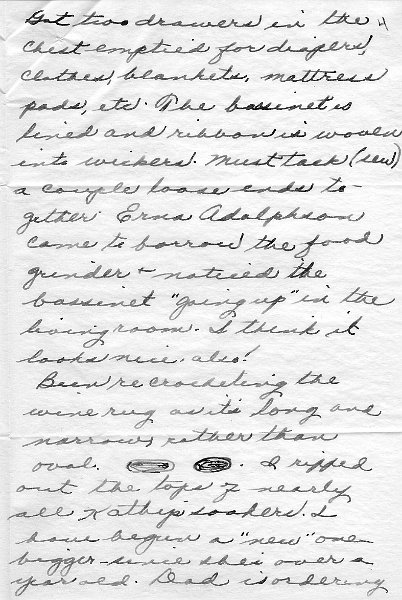 Got two drawers in the 4
chest emptied for diapers,
clothes, blankets, mattress
pads, etc. The bassinet is
lined and ribbon is woven
into wickers. Must tack (sew)
a couple loose ends to-
gether. Erna Adolphson
came to borrow the food
grinder + noticed the
bassinet "going up" in the
living room. I think it
looks nice, also!
Been re crocheting the
wine rug as it's long and
narrow, rather than
oval. . I ripped
out the tops of nearly
all Kathy's soakers. I
have begun a "new" one
bigger since she's over a
year old. Dad is ordering